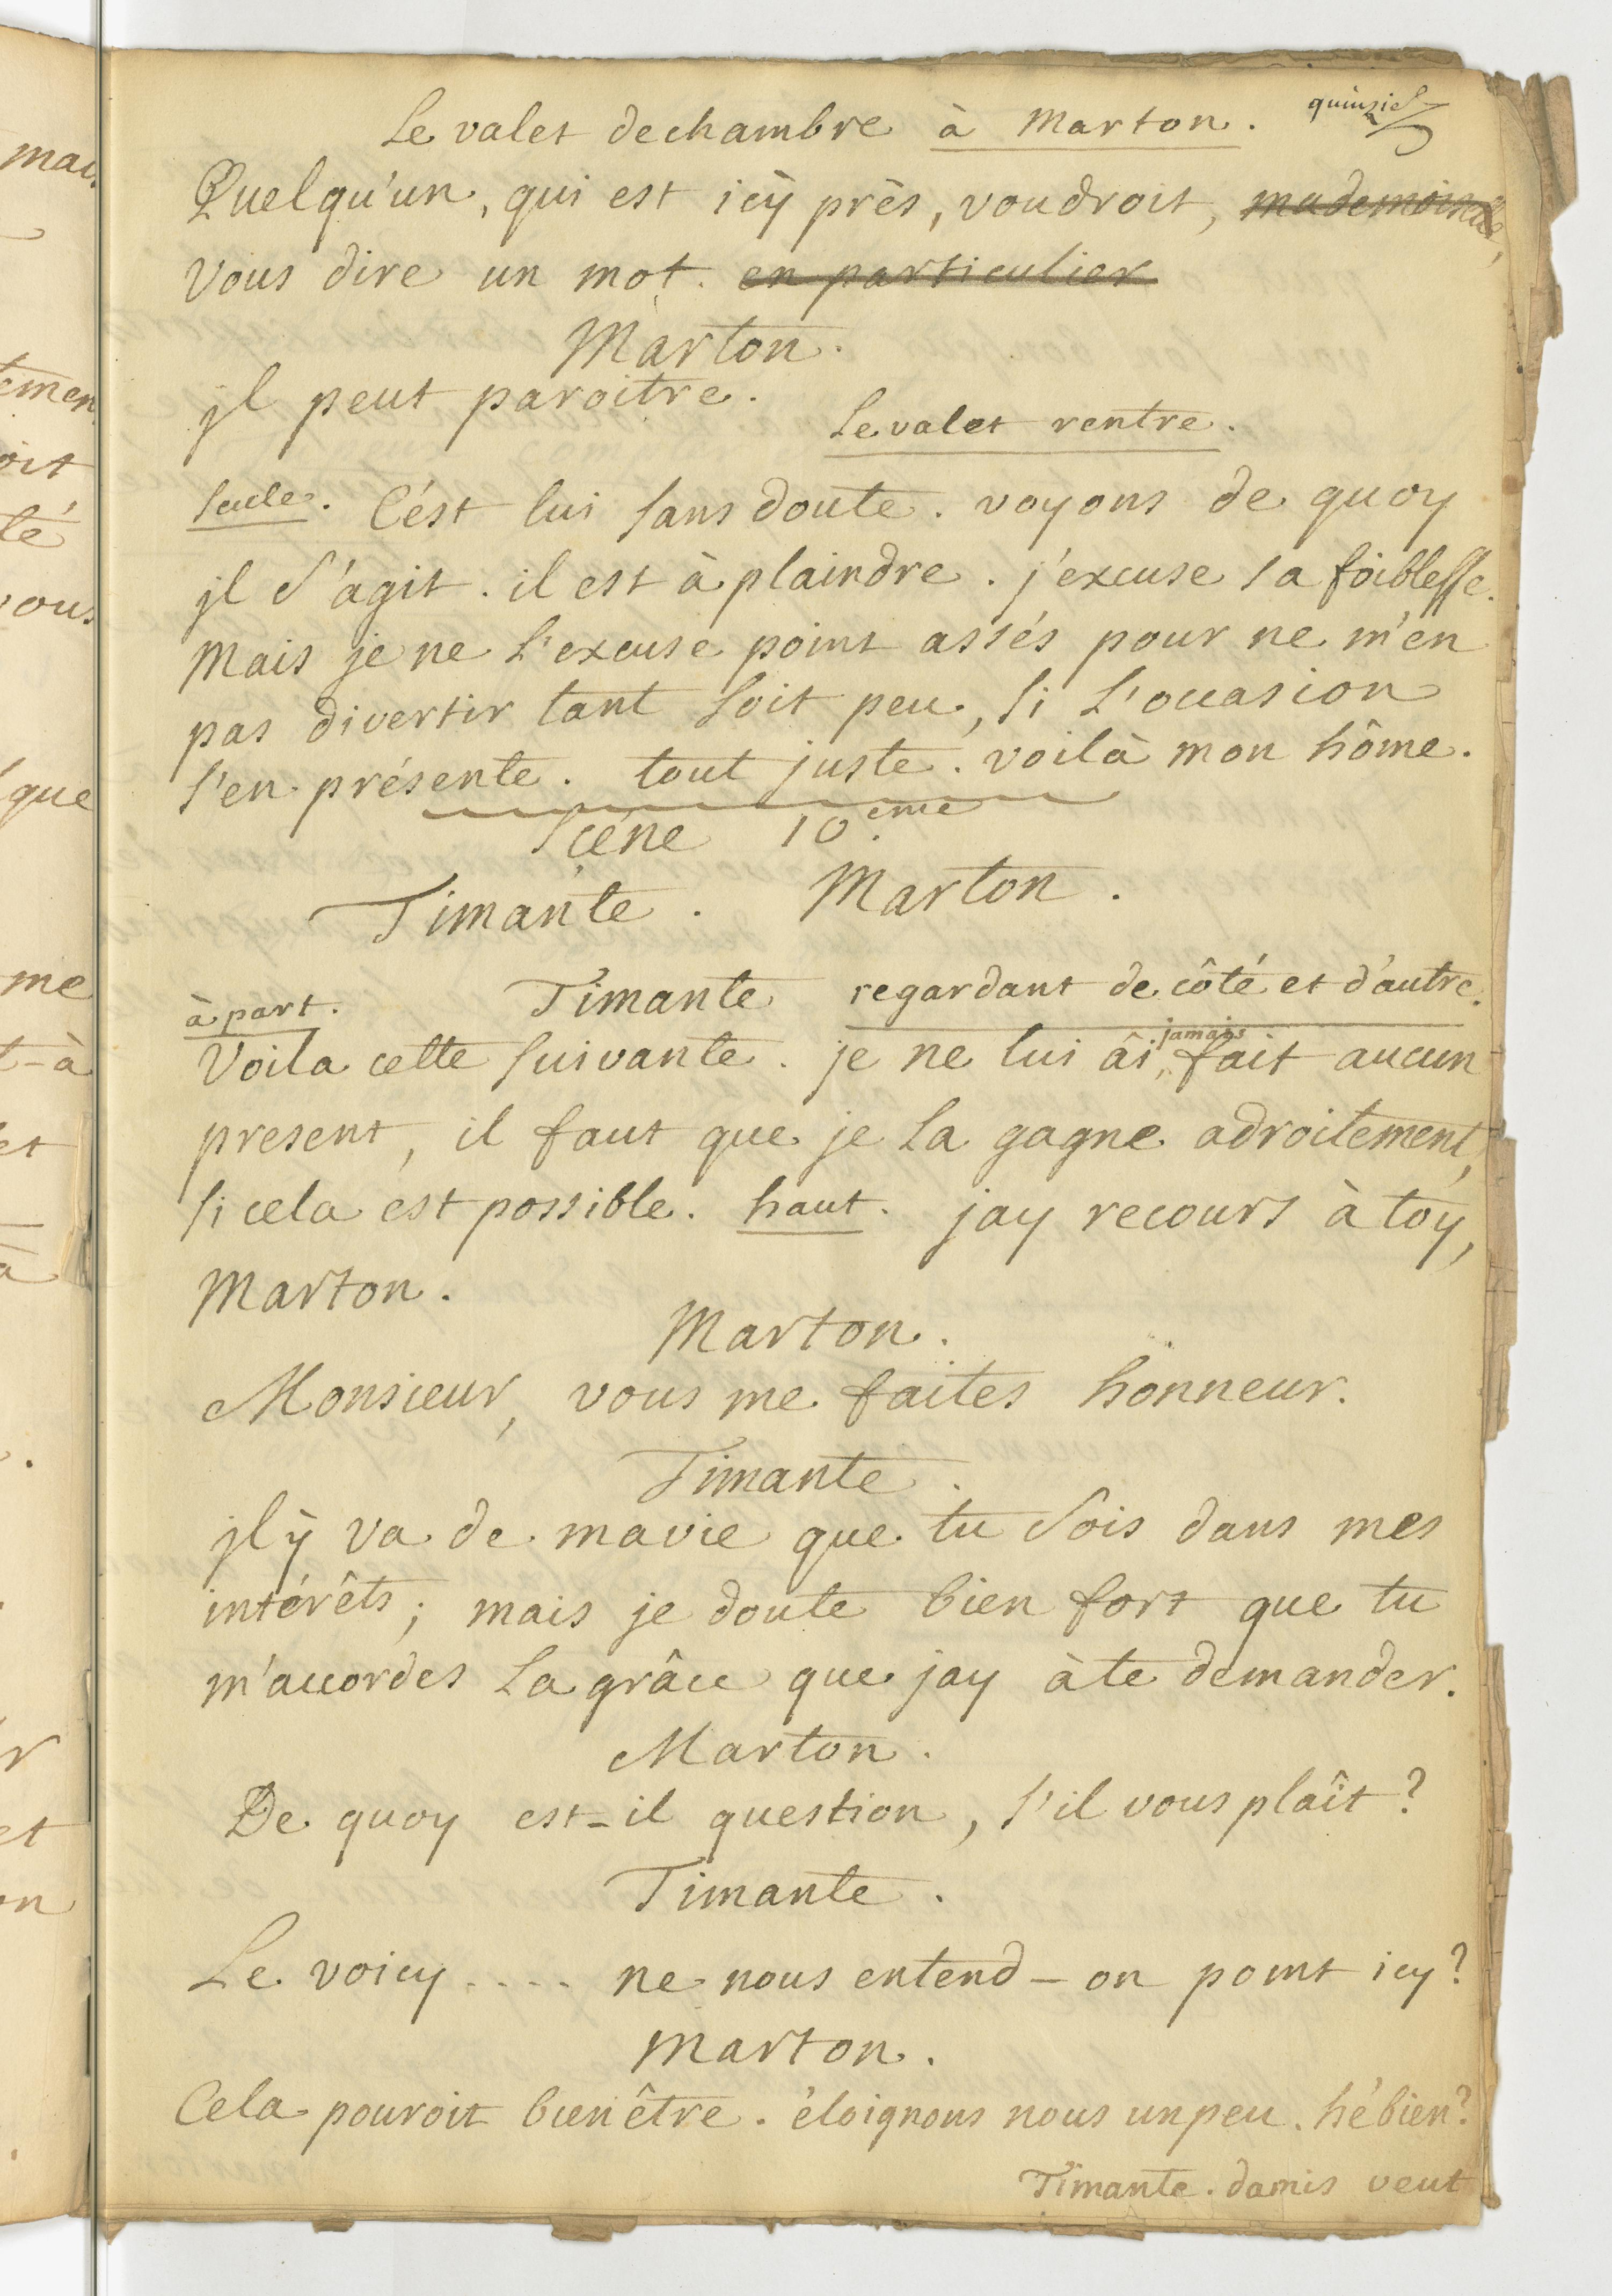 Le valet de chambre à Marton.
Quelqu'un, qui est icÿ près, voudroit, mademoiselle,
Vous dire un mot. en particulier
Marton.
jl peut paroitre.
Le valet rentre.
seule. C'ést lui sans doute. voyons de quoy
jl s'agit. il est à plaindre. j'excuse sa foiblesse.
Mais je ne l'excuse point assés pour ne m'en
pas divertir tant soit peu, si l'occasion
s'en présente. tout juste. voilà mon hôme.
Scéne 10.eme
Timante. Marton.
à part. Timante regardant de côté et d'autre.
Voila cette suivante. je ne lui âi jamais fait aucun
present, il faut que je la gagne adroitement,
si cela est possible. haut. jay recours à toy,
Marton.
Marton.
Monsieur, vous me faites honneur.
Timante.
jl ÿ va de ma vie que tu sois dans mes
intérêts; mais je doute bien fort que tu
m'accordes la grâce que jay à te demander.
Marton.
De quoy est-il question, s'il vous plaît?
Timante.
Le voicy.... ne nous entend-on point icy?
Marton.
Cela pouroit bien être. éloignons nous un peu. hé bien?
Timante. damis veut